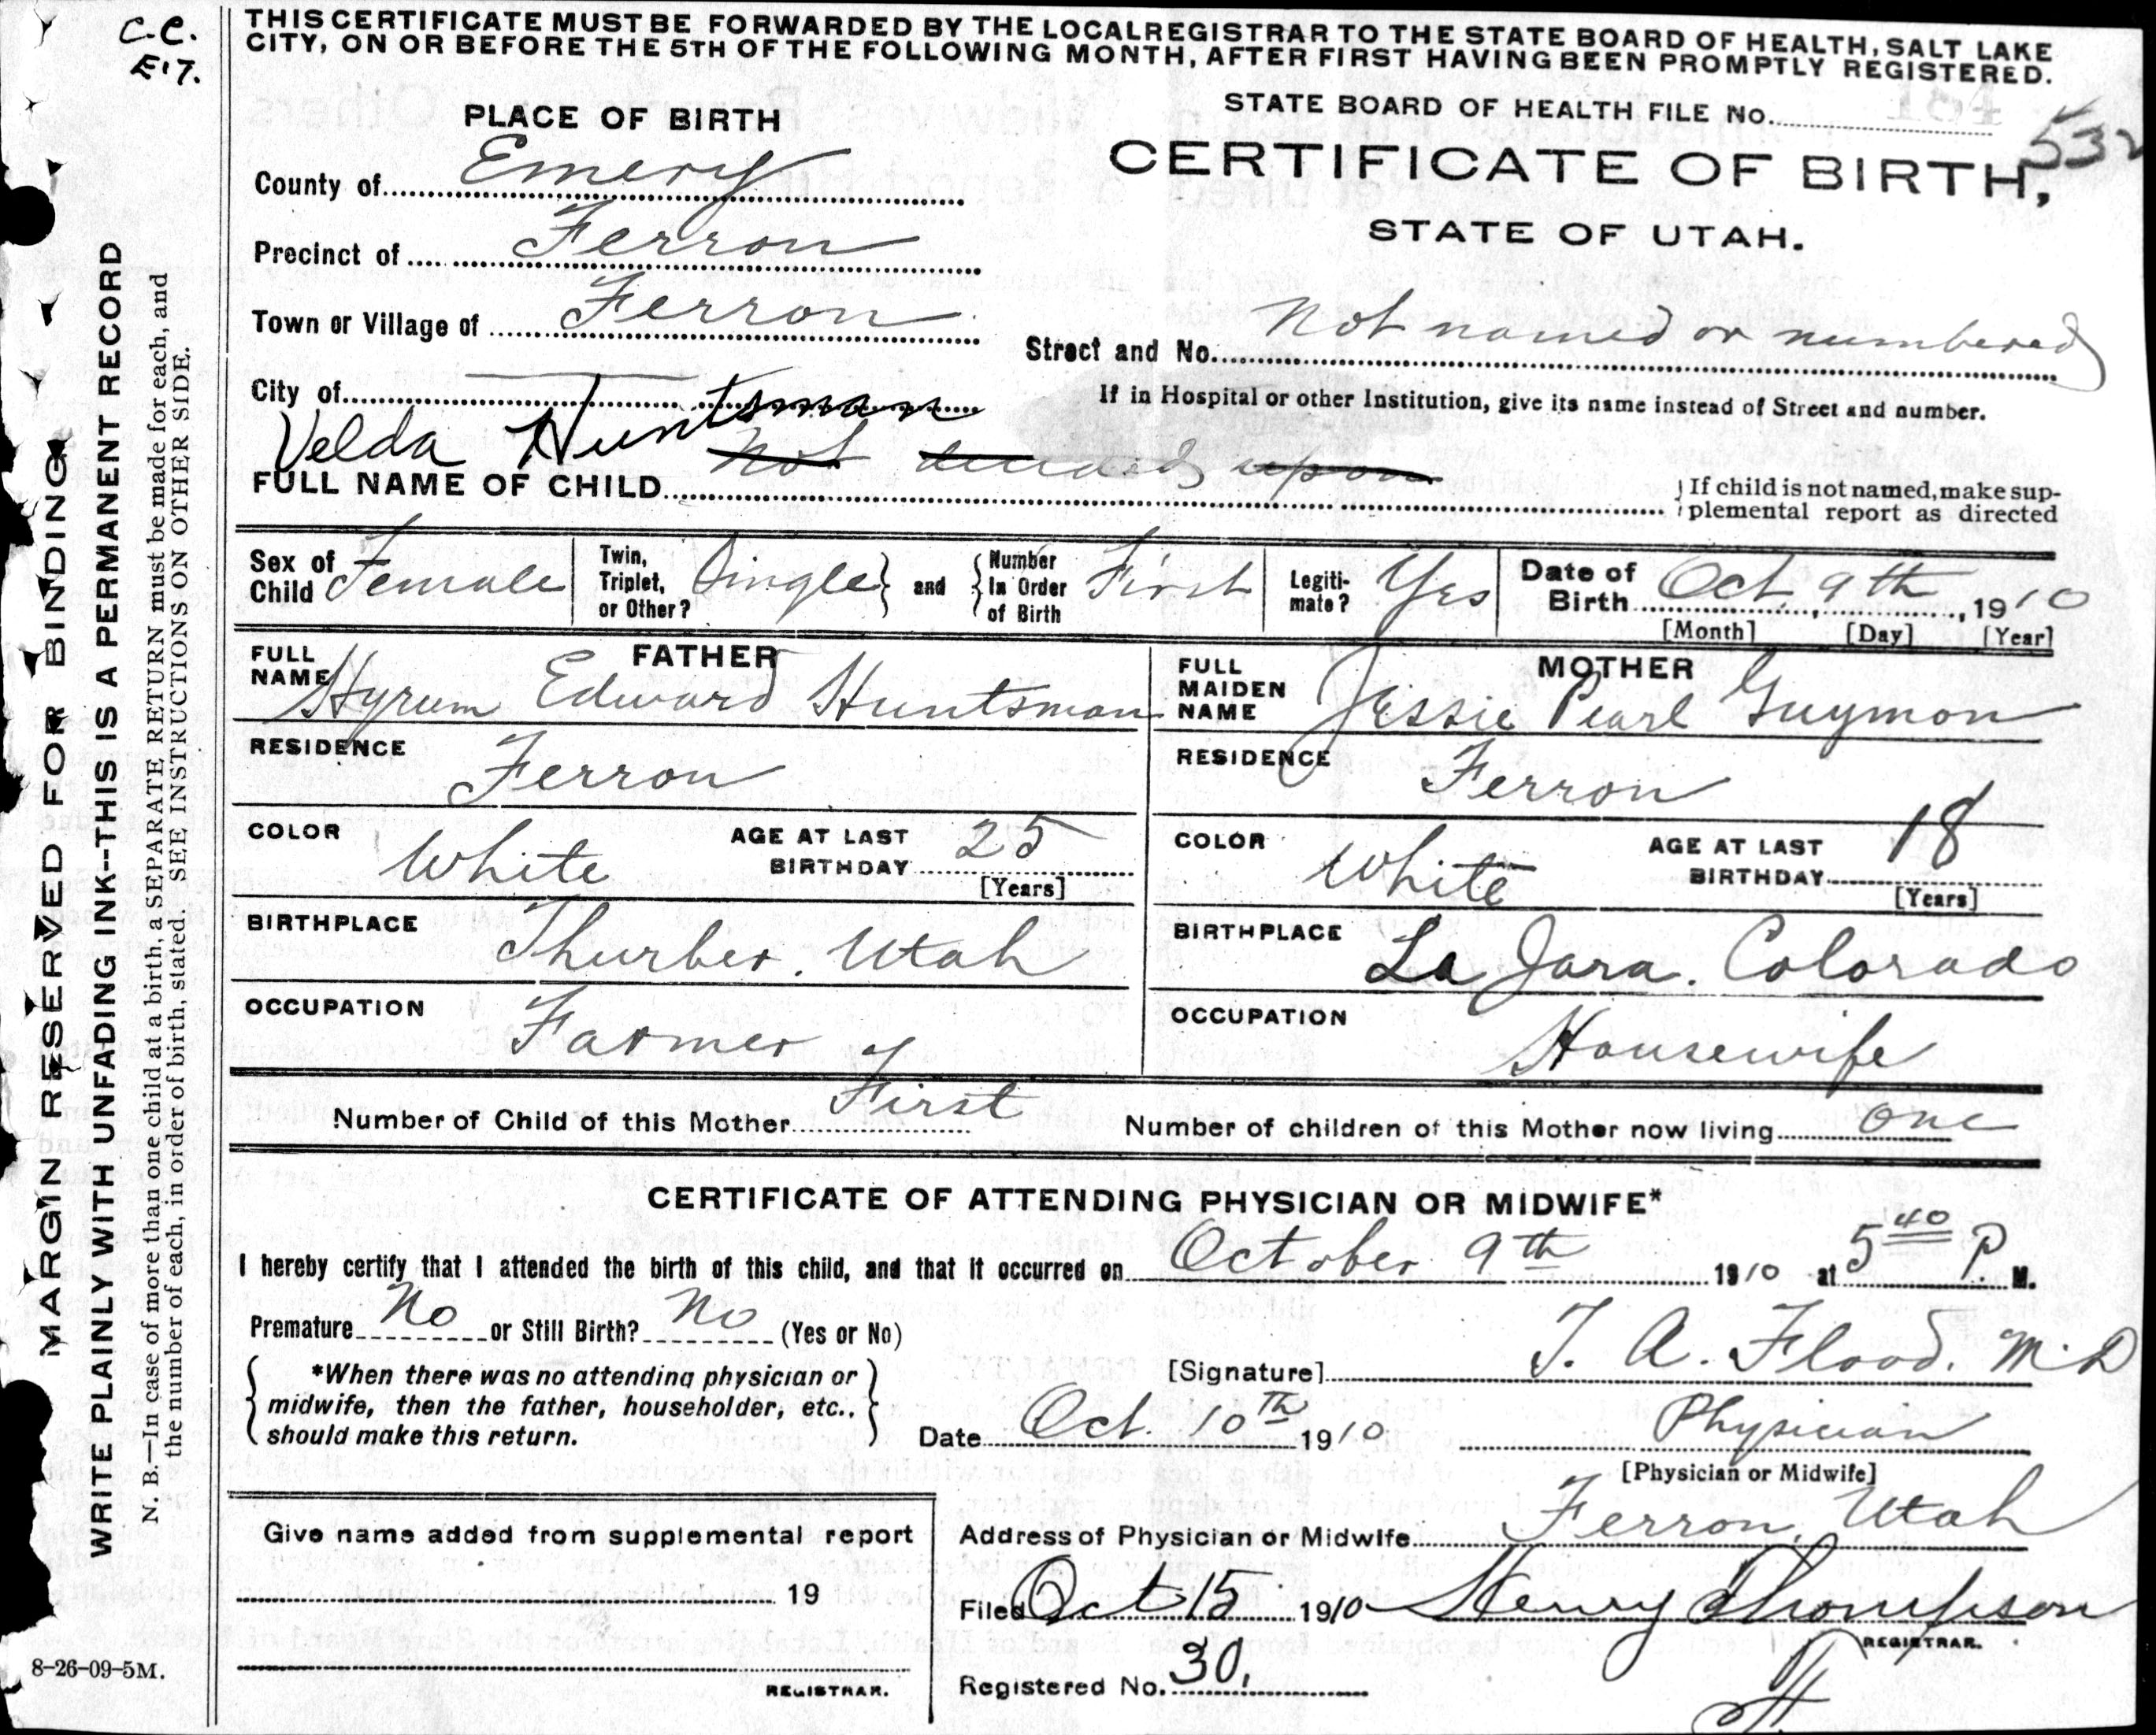 C.C.
E'7.
THIS CERTIFICATE MUST BE FORWARDED BY THE LOCAL REGISTRAR TO THE STATE BOARD OF HEALTH, SALT LAKE
CITY, ON OR BEFORE THE 5TH OF THE FOLLOWING MONTH, AFTER FIRST HAVING BEEN PROMPTLY REGISTERED.
STATE BOARD OF HEALTH FILE No.
532
PLACE OF BIRTH
CERTIFICATE OF BIRTH,
STATE OF UTAH.
County of Emery
Precinct of Ferron
Town or Village of Ferron
Street and No. Not named or numbered
City of
If in Hospital or other Institution, give its name instead of Street and number.
Velda Huntsman
FULL NAME OF CHILD Not decided upon
If child is not named, make sup-
plemental report as directed
Sex of Child Female
Twin, Triplet, or Other? Single and Number In Order of Birth First
Legiti-mate? Yes
Date of Birth Oct, 9th, 1910
[Month] [Day] [Year]
FATHER
FULL NAME Hyrum Edward Huntsman
RESIDENCE Ferron
COLOR White AGE AT LAST BIRTHDAY 25
[Years]
BIRTHPLACE Thurber. Utah
OCCUPATION Farmer
MOTHER
FULL MAIDEN NAME Jessie Pearl Guymon
RESIDENCE Ferron
COLOR White AGE AT LAST BIRTHDAY 18
[Years]
BIRTHPLACE La Jara. Colorado
OCCUPATION Housewife
Number of Child of this Mother First Number of children of this Mother now living one
CERTIFICATE OF ATTENDING PHYSICIAN OR MIDWIFE*
I hereby certify that I attended the birth of this child, and that it occurred on October 9th 1910 at 5 40 P. M.
Premature No or Still Birth? No (Yes or No)
*When there was no attending physician or
midwife, then the father, householder, etc.,
should make this return.
[Signature] T. A. Flood. M.D
Date Oct. 10th 1910 Physician
[Physician or Midwife]
Address of Physician or Midwife Ferron, Utah
Give name added from supplemental report
19
REGISTRAR.
Filed Oct 15 1910 Henry Thompson
REGISTRAR.
Registered No. 30.
MARGIN RESERVED FOR BINDING
WRITE PLAINLY WITH UNFADING INK--THIS IS A PERMANENT RECORD
N. B.—In case of more than one child at a birth, a SEPARATE RETURN must be made for each, and
the number of each, in order of birth, stated. SEE INSTRUCTIONS ON OTHER SIDE.
8-26-09-5M.